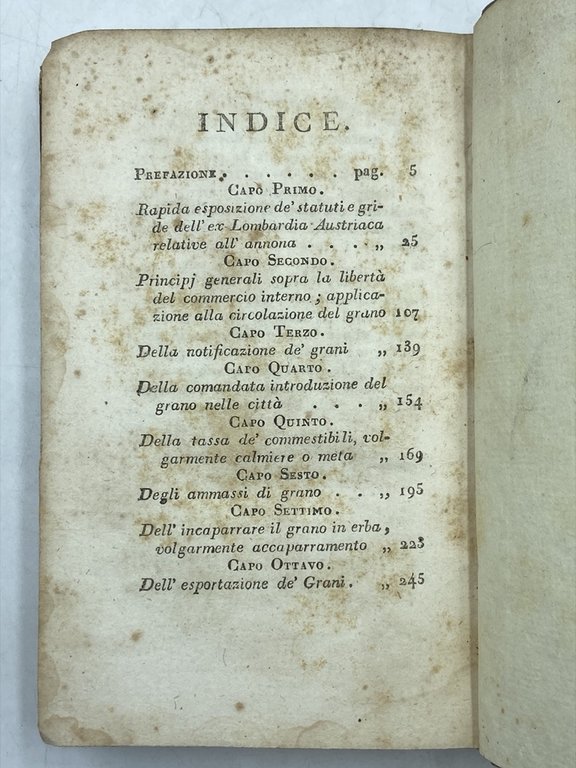 INDICE.
PREFAZIONE . . . . . . pag. 5
CAPO PRIMO.
Rapida esposizione de' statuti e gri-
de dell' ex Lombardia Austriaca
relative all' annona . . . . „ 25
CAPO SECONDO.
Principj generali sopra la libertà
del commercio interno ; applica-
zione alla circolazione del grano 107
CAPO TERZO.
Della notificazione de' grani „ 139
CAPO QUARTO.
Della comandata introduzione del
grano nelle città . . . „ 154
CAPO QUINTO.
Della tassa de' commestibili, vol-
garmente calmiere o meta „ 169
CAPO SESTO.
Degli ammassi di grano . . „ 195
CAPO SETTIMO.
Dell' incaparrare il grano in erba,
volgarmente accaparramento „ 223
CAPO OTTAVO.
Dell' esportazione de' Grani. „ 245